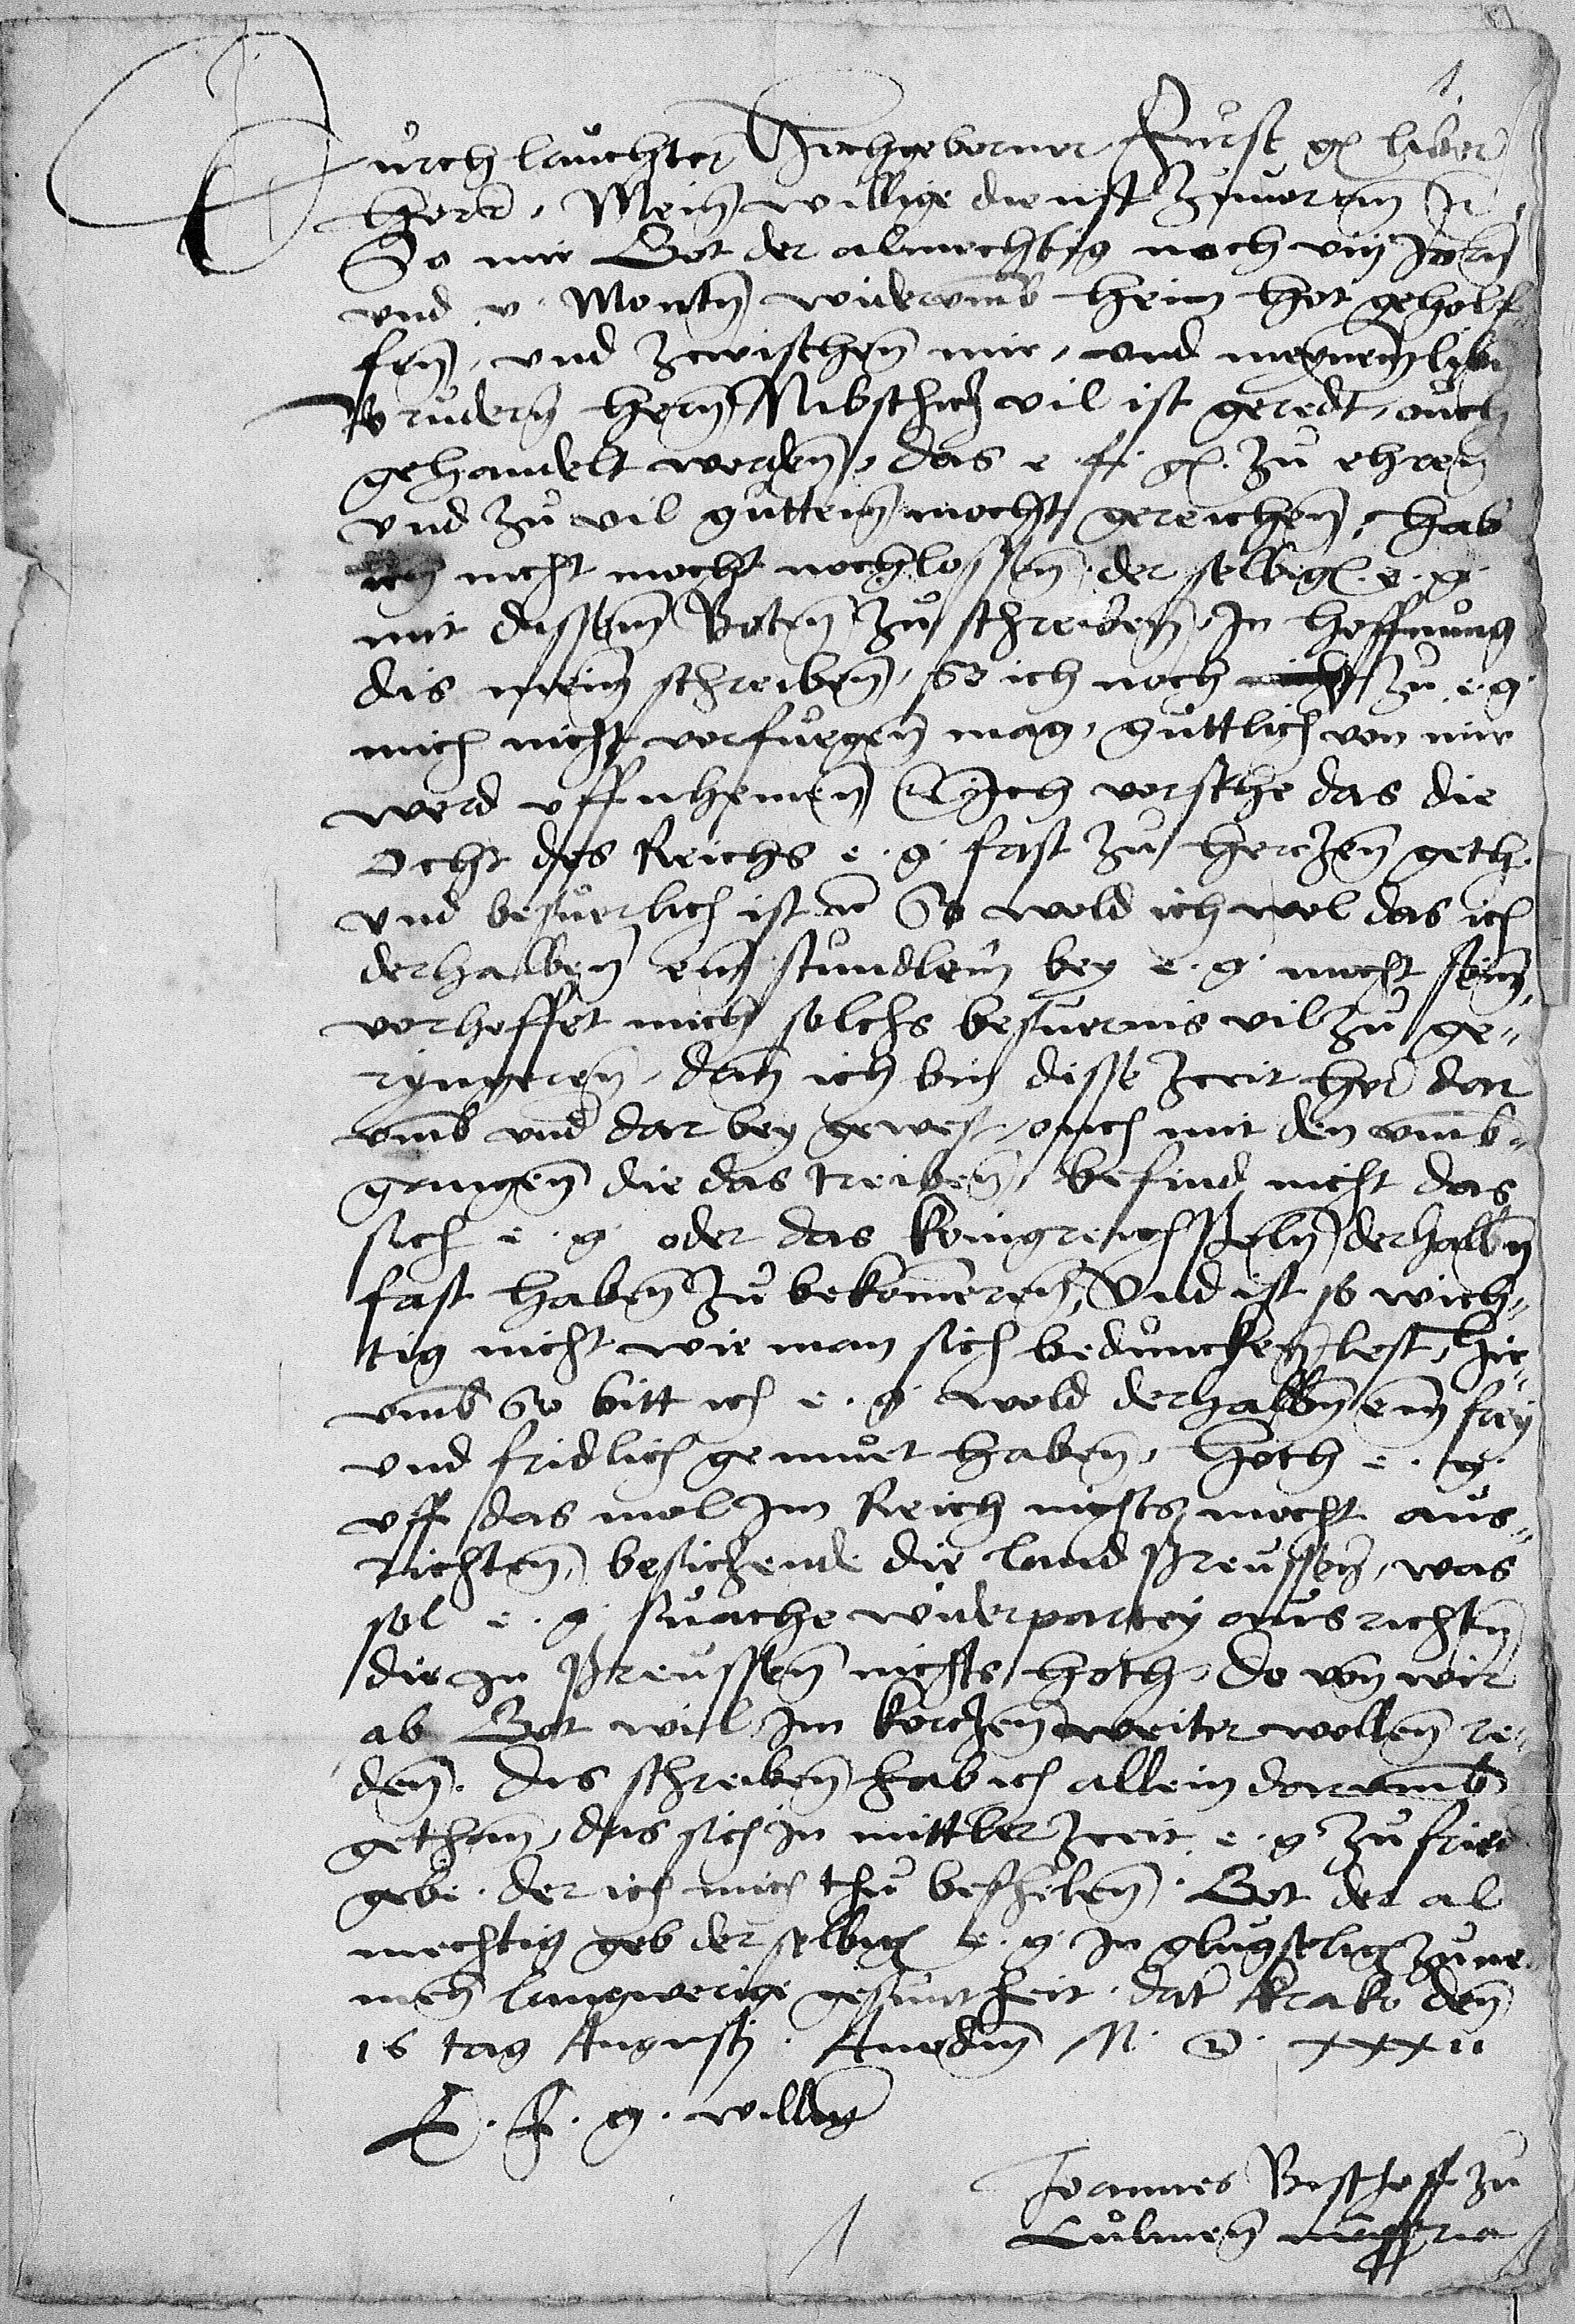 Durchlauchter Hochgeborner Furst g. liber
Herr, Mein willige dienst zuuoran etc
So mir Got der almechtig noch viii Jorn
vnd v Montn widerumb heim hot geholf
fen, vnd zcwischenn mir, vnd meynem libn
Brudern hern Nibschicz vil ist geredt, ouch
gehandelt worden, das e. f. g. zu ehren
vnd zu vil guttem mocht gereichen, hab
ich nicht mocht nochlossen der selbigen e. g.
mit dissem Boten zu schreiben, In hoffnung
dis mein schreiben, So ich noch zu e. g.
mich nicht vorfuegen mag, guttlich von mir
werd uffnhemen. Ich vorsehe das die
Ocht des Reichs e. g. fast zu herczen geth.
vnd besuerlich ist etc So wold ich wol das ich
derhalben ein stundlein bey e. g. mocht sein,
vorhoffet mich solchs besuernis vil zu ge„
ryngeren, dan ich bin disse zceit her dar
vmb vnd dar bey gewest, ouch mit den vmb„
gangen die das treiben, befind nicht das
sich e. g. oder das konigreich Poln derhalben
fast haben zu bekommeren, Vnd ist so wich„
tig nicht wie man sich beduncken lest, hir„
vmb So bitt ich e. g. wold derhalbn ein frey
vnd fridlich gemuet haben, Hoth e. g.
uff das mol Im Reich nichts mocht aus„
richten, besiczende die land Preussen, was
sol e. g. suache widerpartey ausrichtn
die In Preussen nichts hoth, do von wir
ab Got wil Im korczen weiter wollen re„
den. Dis schreiben hab ich allein dorumb
gethan, das sich In mittler zceit e. g. zu frid
gebe. der ich mich thu befhelen. Got der al
mechtig geb der selbigen e. g. In glugselig zune
men langwerige gesuntheit. dat Krako den
16 tag Augusti. Anno dni M. D. xxxii
E. F. g. williger
Joannes Bischoff zu
Culmen mppria